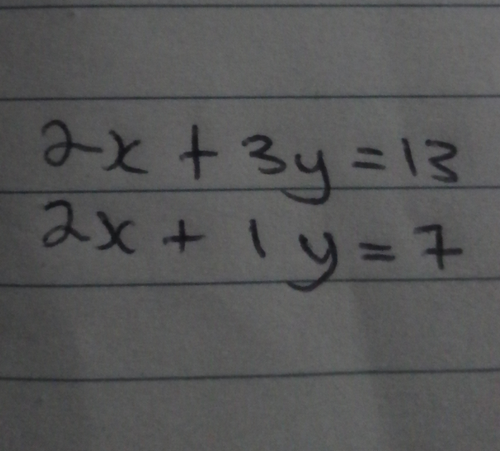 2x + 3y = 13
2x + 1y = 7